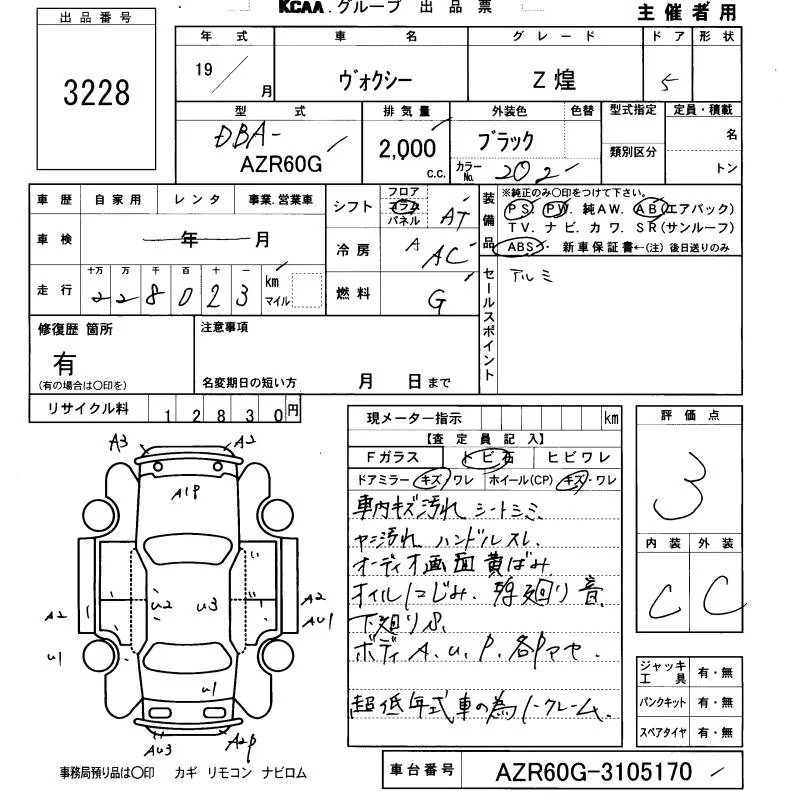 KCAA.グループ 出品票
主催者用
出品番号
3228
年式 車名 グレード ドア 形状
19／月 ヴォクシー Z煌 5
型式 排気量 外装色 色替 型式指定 定員・積載
DBA-
AZR60G 2,000 c.c. ブラック 名
カラーNo. 202 類別区分 トン
車歴 自家用 レンタ 事業.営業車
車検 年 月
走行 十万 万 千 百 十 一 km マイル
2 2 8 0 2 3
シフト フロア コラム パネル AT
冷房 A AC
燃料 G
装備品
※純正のみ○印をつけて下さい。
PS. PW. 純AW. AB(エアバック)
TV. ナビ. カワ. SR(サンルーフ)
ABS・ 新車保証書←(注) 後日送りのみ
セールスポイント
アルミ
修復歴 箇所
有
(有の場合は○印を)
注意事項
名変期日の短い方 月 日まで
リサイクル料 12830円
現メーター指示 km
【査定員記入】
Fガラス トビ石 ヒビワレ
ドアミラー キズ・ワレ ホイール(CP) キズ・ワレ
車内キズ汚れ シートシミ
ヤニ汚れ ハンドルスレ
オーディオ画面黄ばみ
オイルにじみ. 廻り音
下廻りS.
ボディ A. U. P. 各Pマヤ.
超低年式車の為ノークレーム.
評価点
3
内装 外装
C C
ジャッキ工具 有・無
パンクキット 有・無
スペアタイヤ 有・無
A3 A2
A1P
U2 U3
A2 A2
AU1
U1
U1
AU3 A2P
事務局預り品は○印 カギ リモコン ナビロム
車台番号 AZR60G-3105170